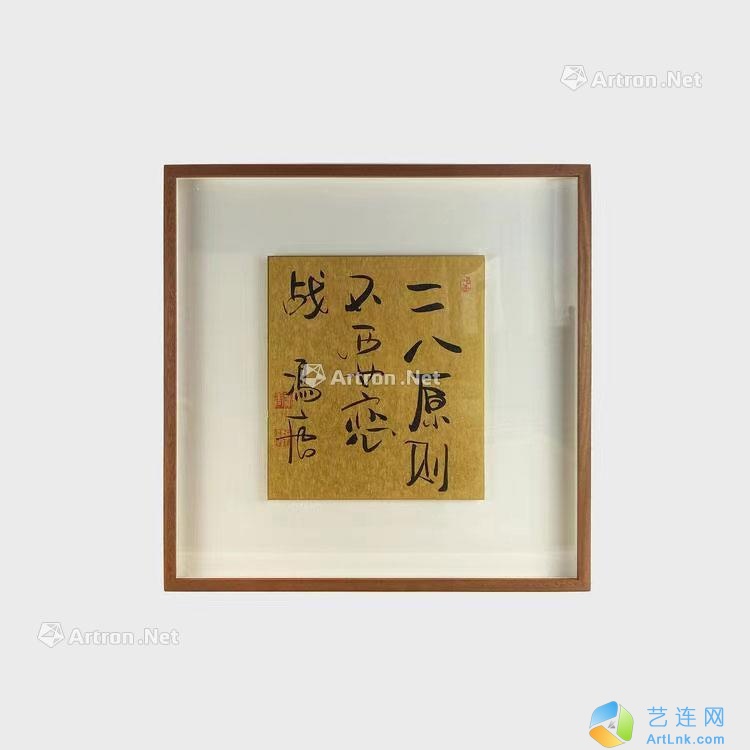 Artron.Net
二八原则
不要恋
战 冯唐
Artron.Net
Artron.Net
艺连网
ArtLnk.com